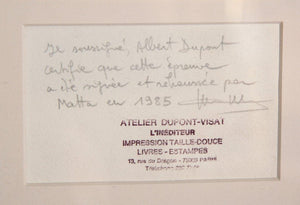 Je soussigné, Albert Dupont
certifie que cette épreuve
a été signée et rehaussée par
Matta en 1985
ATELIER DUPONT-VISAT
L'INÉDITEUR
IMPRESSION TAILLE-DOUCE
LIVRES - ESTAMPES
13, rue du Dragon - 75006 PARIS